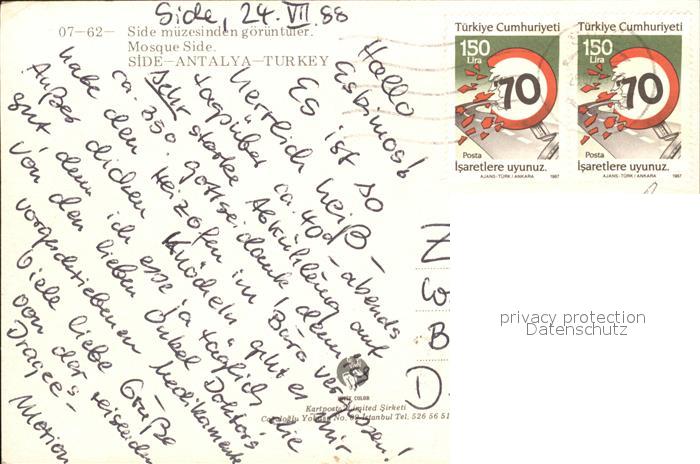 Side, 24. VII. 88
07-62- Side müzesinden görüntüler.
Mosque Side.
SİDE-ANTALYA-TURKEY
Hallo
Eskimos!
Es ist so
herrlich heiß -
tagsüber ca. 40° - abends
sehr starke Abkühlung auf
ca. 35° gottseidank, denn ich
habe den Heizofen im Büro vergessen!
Außer dicken Knödeln geht es mir
gut, denn ich esse ja täglich die
von den lieben Onkel Doktors
vorgeschriebenen Medikamente
Viele liebe Grüße
von der reisenden
Dragee -
Marion
Türkiye Cumhuriyeti
150
Lira
70
Posta
İşaretlere uyunuz.
AJANS-TÜRK / ANKARA 1987
Türkiye Cumhuriyeti
150
Lira
70
Posta
İşaretlere uyunuz.
AJANS-TÜRK / ANKARA 1987
Z
W
B
D
privacy protection
Datenschutz
COLOR
Kartpostal Limited Şirketi
Cağaloğlu Yokuşu No. İstanbul Tel. 526 56 51